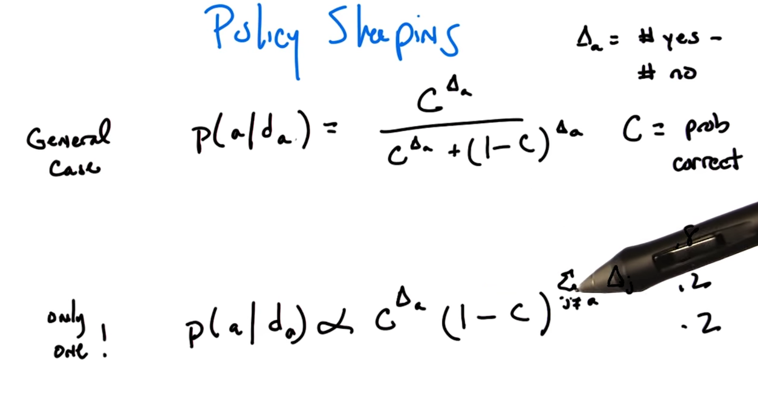 Policy Shaping
Δₐ = # yes −
# no
General
Case
p(a|dₐ) = C^Δₐ / (C^Δₐ + (1 − C)^Δₐ)
C = prob
correct
.8
only
one!
p(a|dₐ) ∝ C^Δₐ (1 − C)^Σ_{j≠a} Δⱼ
.2
.2